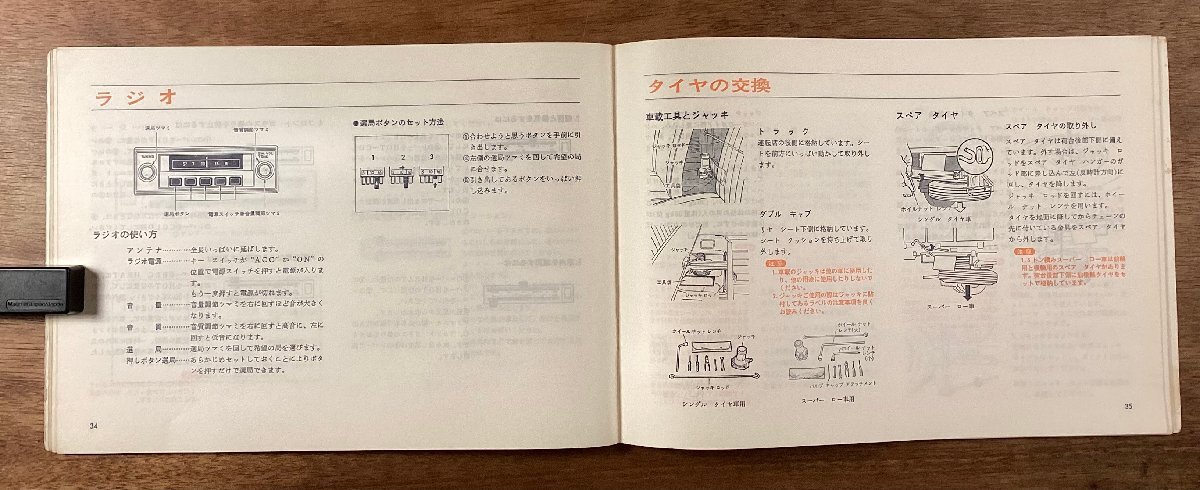 ラジオ
選局ツマミ
音質調節ツマミ
選局ボタン
電源スイッチ兼音量調節ツマミ
●選局ボタンのセット方法
1 2 3
①合わせようと思うボタンを手前に引
き出します。
②左側の選局ツマミを回して希望の局
に合せます。
③引き出してあるボタンをいっぱい押
し込みます。
ラジオの使い方
アンテナ…………全長いっぱいに延ばします。
ラジオ電源………キー スイッチが“ACC”か“ON”の
位置で電源スイッチを押すと電源が入りま
す。
もう一度押すと電源が切れます。
音 量…………音量調節ツマミを右に回すほど音が大きく
なります。
音 質…………音質調節ツマミを右に回すと高音に、左に
回すと低音になります。
選 局…………選局ツマミを回して希望の局を選びます。
押しボタン選局……あらかじめセットしておくことによりボタ
ンを押すだけで選局できます。
34
タイヤの交換
車載工具とジャッキ
ジャッキ ロッド
ジャッキ
工具袋
トラック
運転席の後側に格納しています。シー
トを前方にいっぱい動かして取り外し
ます。
ジャッキ
工具袋
ダブル キャブ
リヤ シート下側に格納しています。
シート クッションを持ち上げて取り
外します。
注意
1.車載のジャッキは他の車に使用した
り、他の用途に使用したりしないで
ください。
2.ジャッキご使用の際はジャッキに貼
付してあるラベルの注意事項を良く
お読みください。
ホイールナット レンチ
ジャッキ
ジャッキ ロッド
シングル タイヤ車用
ホイール ナット
レンチ(大)
ホイール ナット
レンチ
(小)
ハブ キャップ アタッチメント
スーパー ロー車用
スペア タイヤ
ホイルナット レンチ
シングル タイヤ車
スーパー ロー車
スペア タイヤの取り外し
スペア タイヤは荷台後部下面に備え
ています。外す場合は、ジャッキ ロ
ッドをスペア タイヤ ハンガーのガ
イド部に差し込んで左(反時計方向)に
回し、タイヤを降します。
ジャッキ ロッドを回すには、ホイー
ル ナット レンチを用います。
タイヤを地面に降してからチェーンの
先に付いている金具をスペア タイヤ
から外します。
注意
1.5トン積みスーパー ロー車は前輪
用と後輪用のスペア タイヤがありま
す。荷台後部下側に後輪用タイヤをセ
ットで格納しています。
35